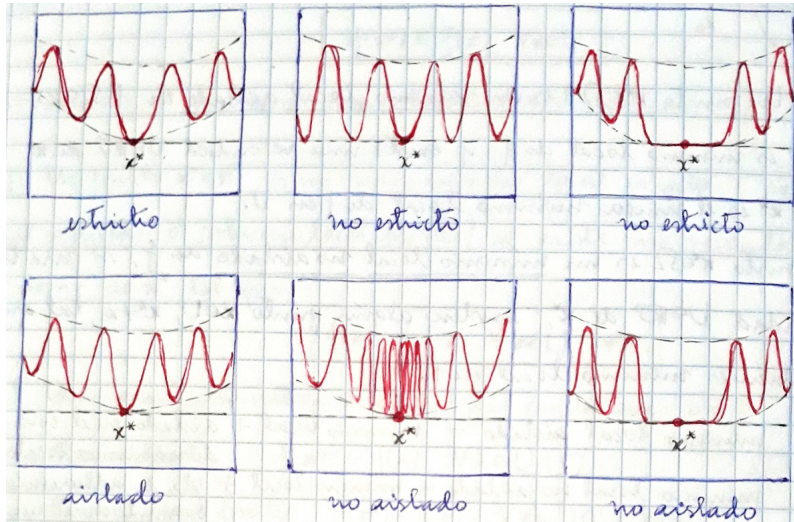 x*
x*
x*
estricto
no estricto
no estricto
x*
x*
x*
aislado
no aislado
no aislado